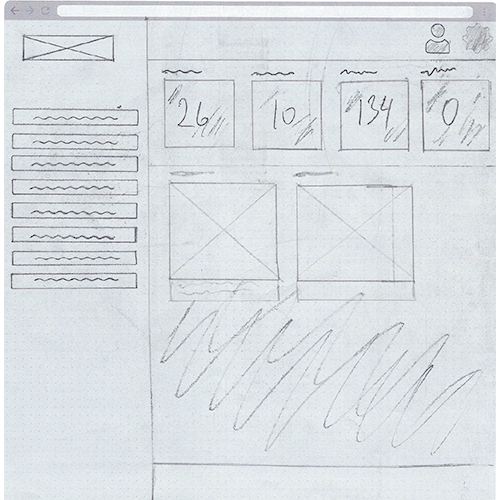 26 10 134 0